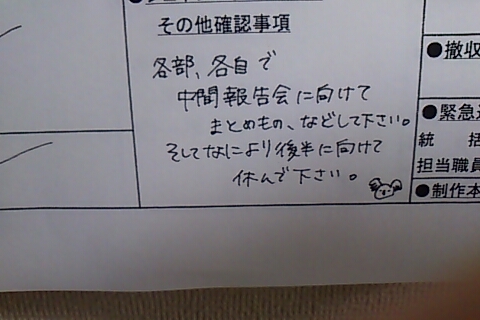 その他確認事項
各部、各自で
中間報告会に向けて
まとめもの、などして下さい。
そしてなにより後半に向けて
休んで下さい。
●撤収
●緊急連
統 括
担当職員
●制作本